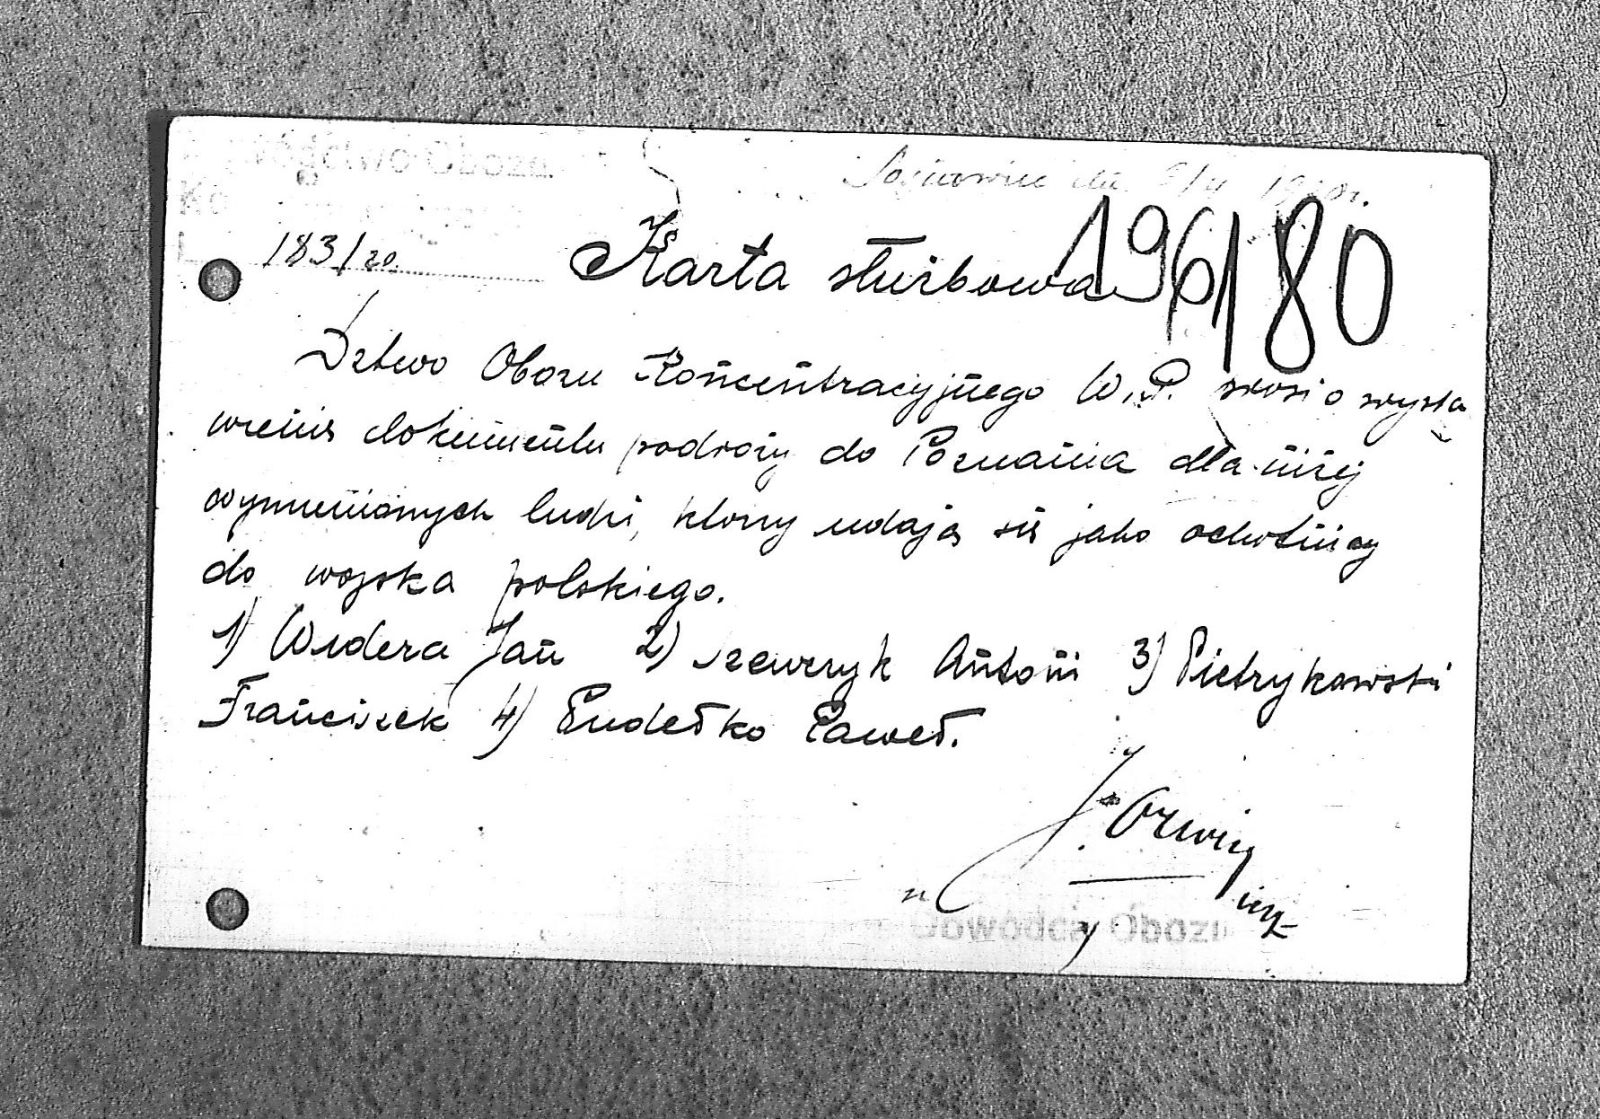 Dowództwo Obozu
183/20.
Karta służbowa
196/80
Dztwo Obozu Koncentracyjnego W.P. prosi o wysta
wienie dokumentu podroży do Poznania dla niżej
wymienionych ludzi, ktorzy udają się jako ochotnicy
do wojska polskiego.
1) Widera Jan 2) Szewczyk Antoni 3) Pietrykowski
Franciszek 4) Pudełko Paweł.
Dowódca Obozu